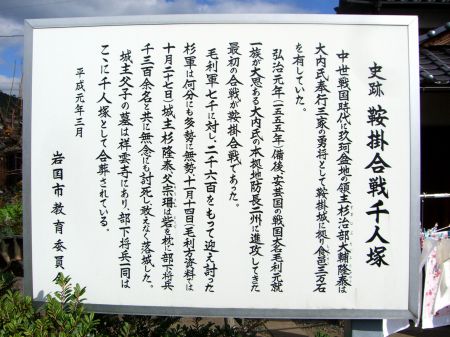 史跡 鞍掛合戦千人塚
中世戦国時代、玖珂盆地の領主杉治部大輔隆泰は
大内氏奉行三家の勇将として、鞍掛城に拠り食邑三万石
を有していた。
弘治元年(一五五五年)備後、安芸国の戦国大名毛利元就
一族が大恩ある大内氏の本拠地防長二州に進攻してきた
最初の合戦が鞍掛合戦であった。
毛利軍七千に対し、二千六百をもって迎え討った
杉軍は何分にも多勢に無勢十一月十四日(毛利方資料では
十月二十七日)城主杉隆泰、父宗珊は砦を枕に部下将兵
千三百余名と共に無念にも討死し敢えなく落城した。
城主父子の墓は祥雲寺にあり、部下将兵一同は
ここに千人塚として合葬されている。
平成元年三月
岩国市教育委員